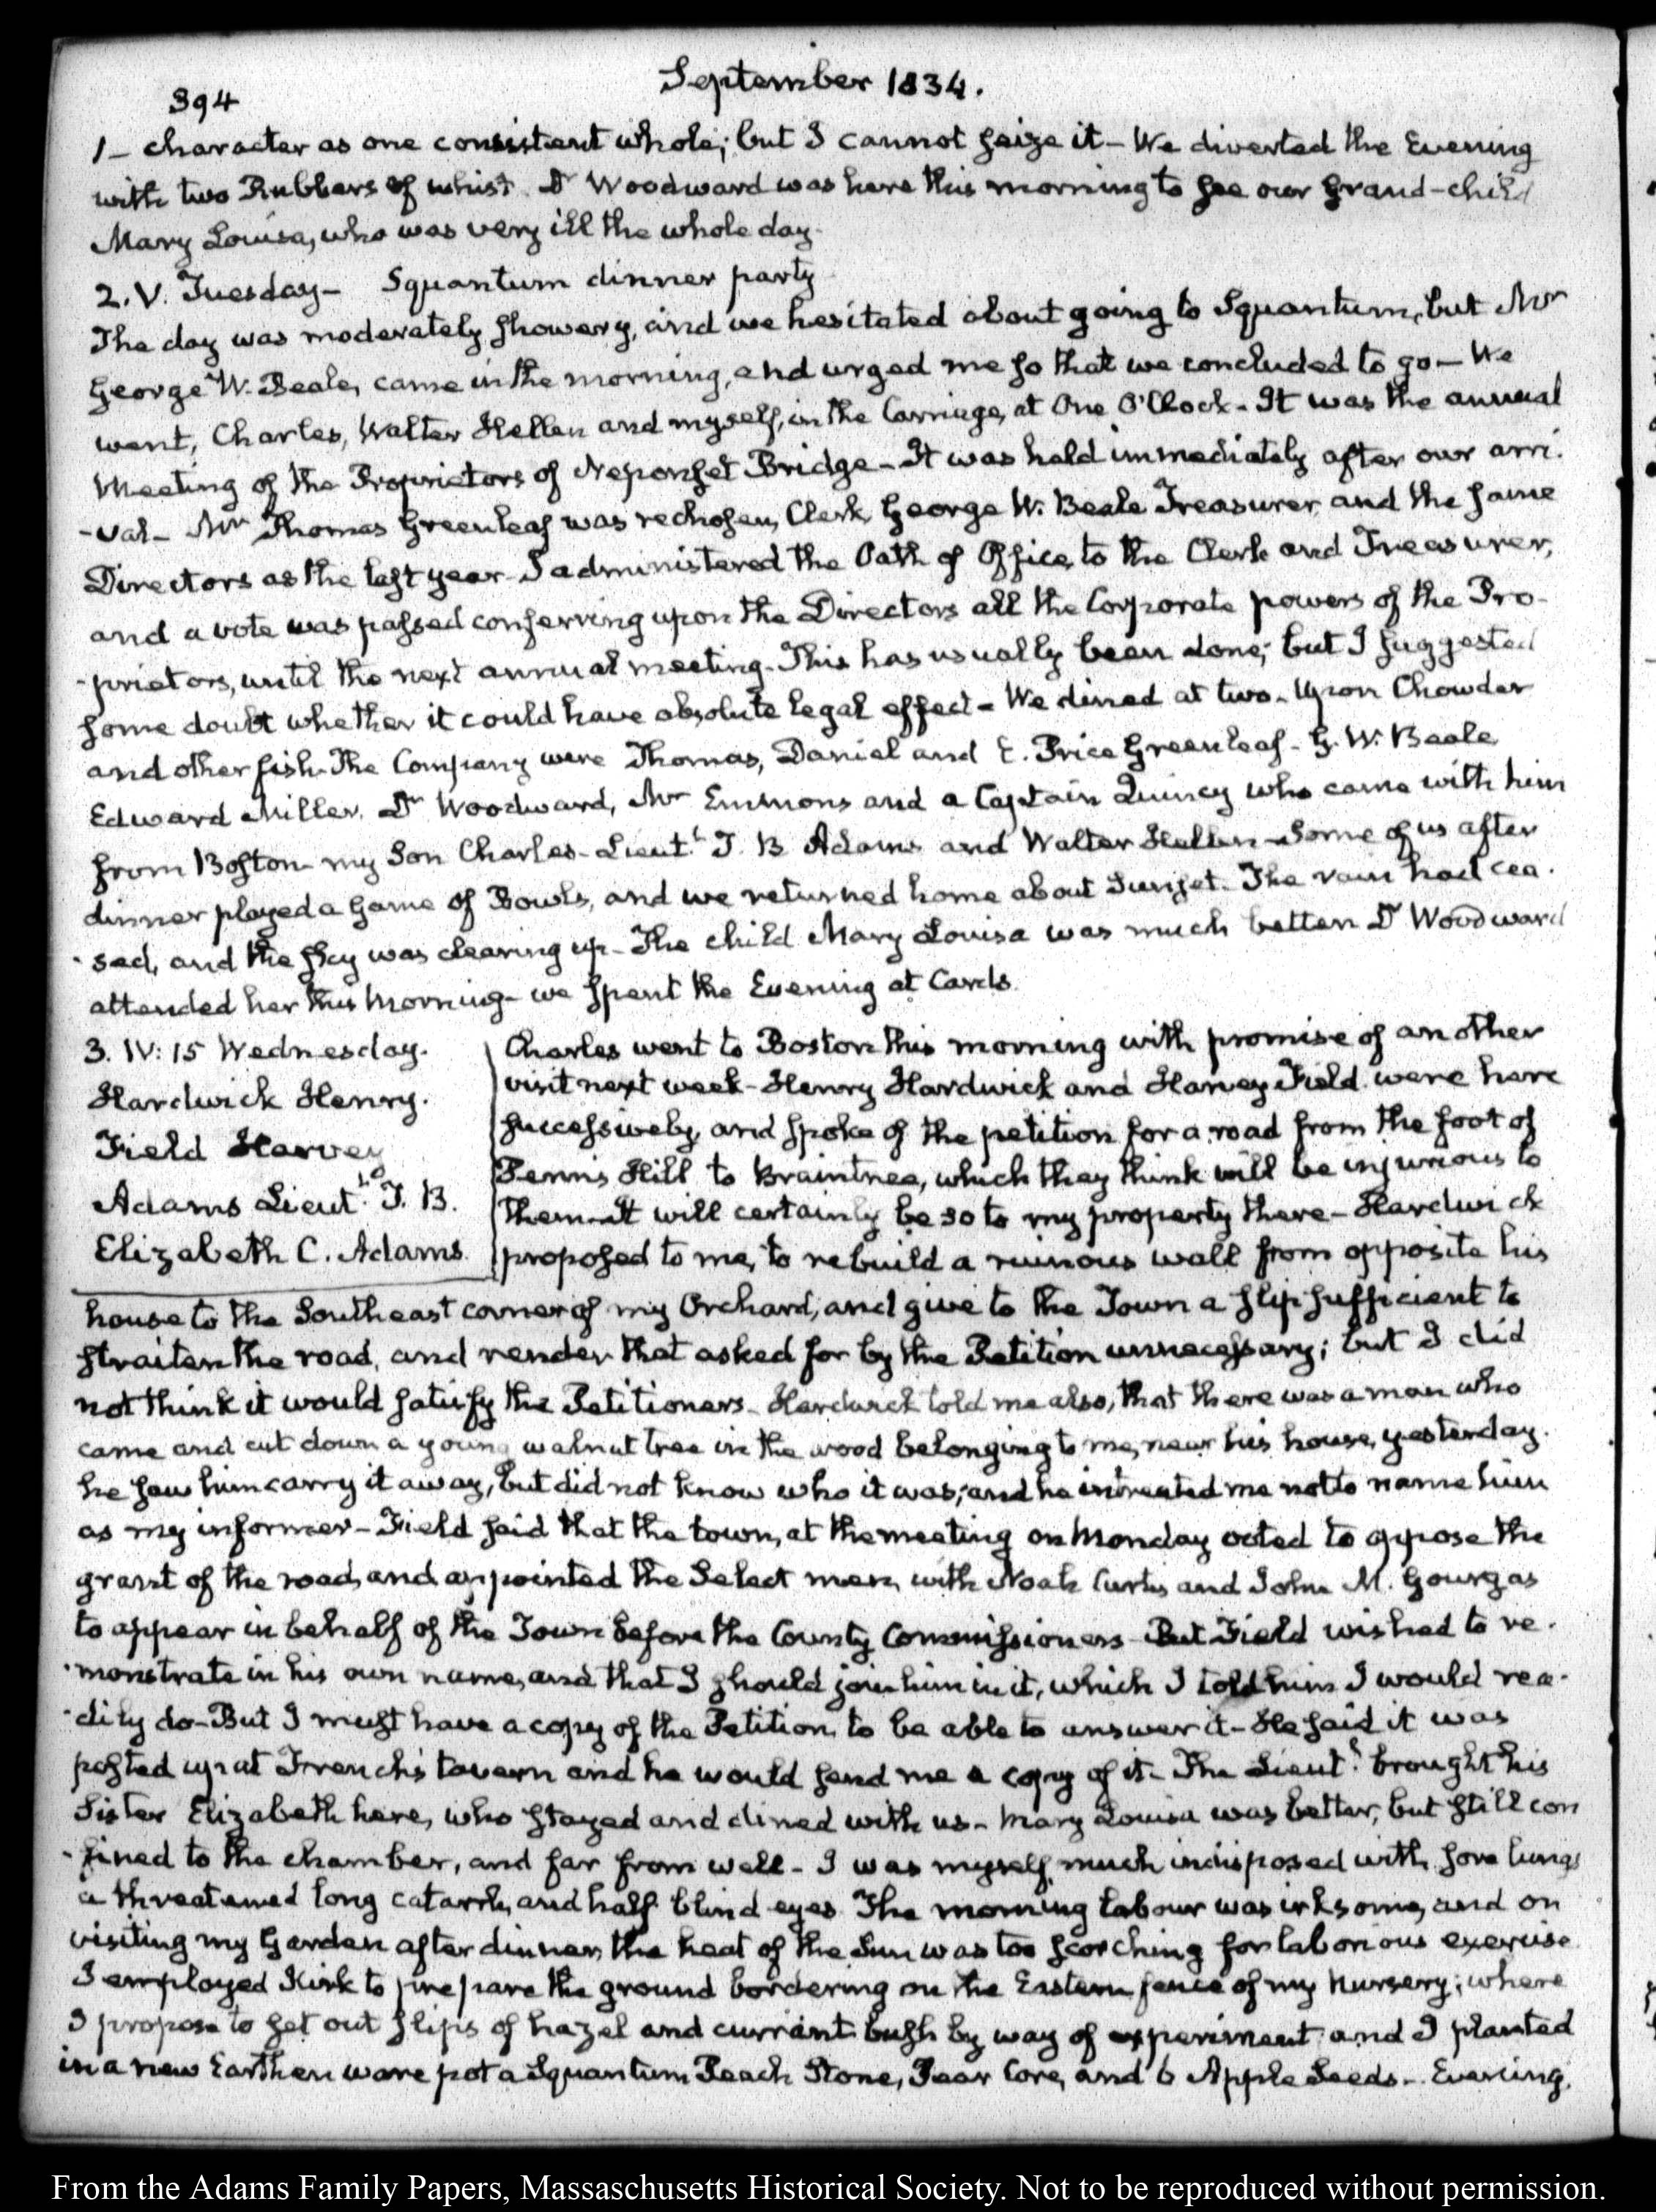 394
September 1834.
1 – character as one consistent whole; but I cannot seize it – We diverted the Evening
with two Rubbers of whist. Dr Woodward was here this morning to see our Grand-child
Mary Louisa, who was very ill the whole day.
2. V. Tuesday – Squantum dinner party
The day was moderately showery, and we hesitated about going to Squantum, but Mr
George W. Beale, came in the morning, and urged me so that we concluded to go – We
went, Charles, Walter Hellen and myself, in the Carriage, at One O'Clock – It was the annual
Meeting of the Proprietors of Neponset Bridge – It was held immediately after our arri-
-val – Mr Thomas Greenleaf was rechosen, Clerk, George W. Beale Treasurer, and the same
Directors as the last year – I administered the Oath of Office, to the Clerk and Treasurer,
and a vote was passed conferring upon the Directors all the Corporate powers of the Pro-
-prietors, until the next annual meeting – This has usually been done; but I suggested
some doubt whether it could have absolute legal effect – We dined at two – upon Chowder
and other fish. The Company were Thomas, Daniel and E. Price Greenleaf – G. W. Beale
Edward Miller, Dr Woodward, Mr Emmons and a Captain Quincy who came with him
from Boston – my Son Charles – Lieut.t J. B Adams and Walter Hellen – Some of us after
dinner played a Game of Bowls, and we returned home about Sunset – The rain had cea-
-sed, and the sky was clearing up – The child Mary Louisa was much better. Dr Woodward
attended her this Morning – we spent the Evening at Cards.
3. IV: 15 Wednesday.
Hardwick Henry.
Field Harvey
Adams Lieut.t J. B.
Elizabeth C. Adams.
Charles went to Boston this morning with promise of another
visit next week – Henry Hardwick and Harvey Field were here
successively, and spoke of the petition for a road from the foot of
Penn's Hill to Braintree, which they think will be injurious to
them – It will certainly be so to my property there – Hardwick
proposed to me, to rebuild a ruinous wall from opposite his
house to the Southeast corner of my Orchard, and give to the Town a slip sufficient to
straiten the road, and render that asked for by the Petition unnecessary; but I did
not think it would satisfy the Petitioners – Hardwick told me also, that there was a man who
came and cut down a young walnut tree in the wood belonging to me, near his house, yesterday.
he saw him carry it away, but did not know who it was; and he intreated me not to name him
as my informer – Field said that the town, at the meeting on Monday voted to oppose the
grant of the road, and appointed the Select men, with Noah Curtis and John M. Gourgas
to appear in behalf of the Town before the County Commissioners – But Field wished to re-
-monstrate in his own name, and that I should join him in it, which I told him I would rea-
-dily do – But I must have a copy of the Petition to be able to answer it – He said it was
posted up at French's tavern and he would send me a copy of it – The Lieut.t brought his
Sister Elizabeth here, who stayed and dined with us – Mary Louisa was better, but still con
-fined to the chamber, and far from well – I was myself much indisposed with sore lungs
a threatened long catarrh, and half blind eyes. The morning labour was irksome, and on
visiting my Garden after dinner, the heat of the Sun was too scorching for laborious exercise.
I employed Kirk to prepare the ground bordering on the Eastern fence of my Nursery; where
I propose to set out slips of hazel and currant bush by way of experiment and I planted
in a new Earthen ware pot a Squantum Peach Stone, Pear Core, and 6 Apple Seeds – Evening.
From the Adams Family Papers, Massachusetts Historical Society. Not to be reproduced without permission.